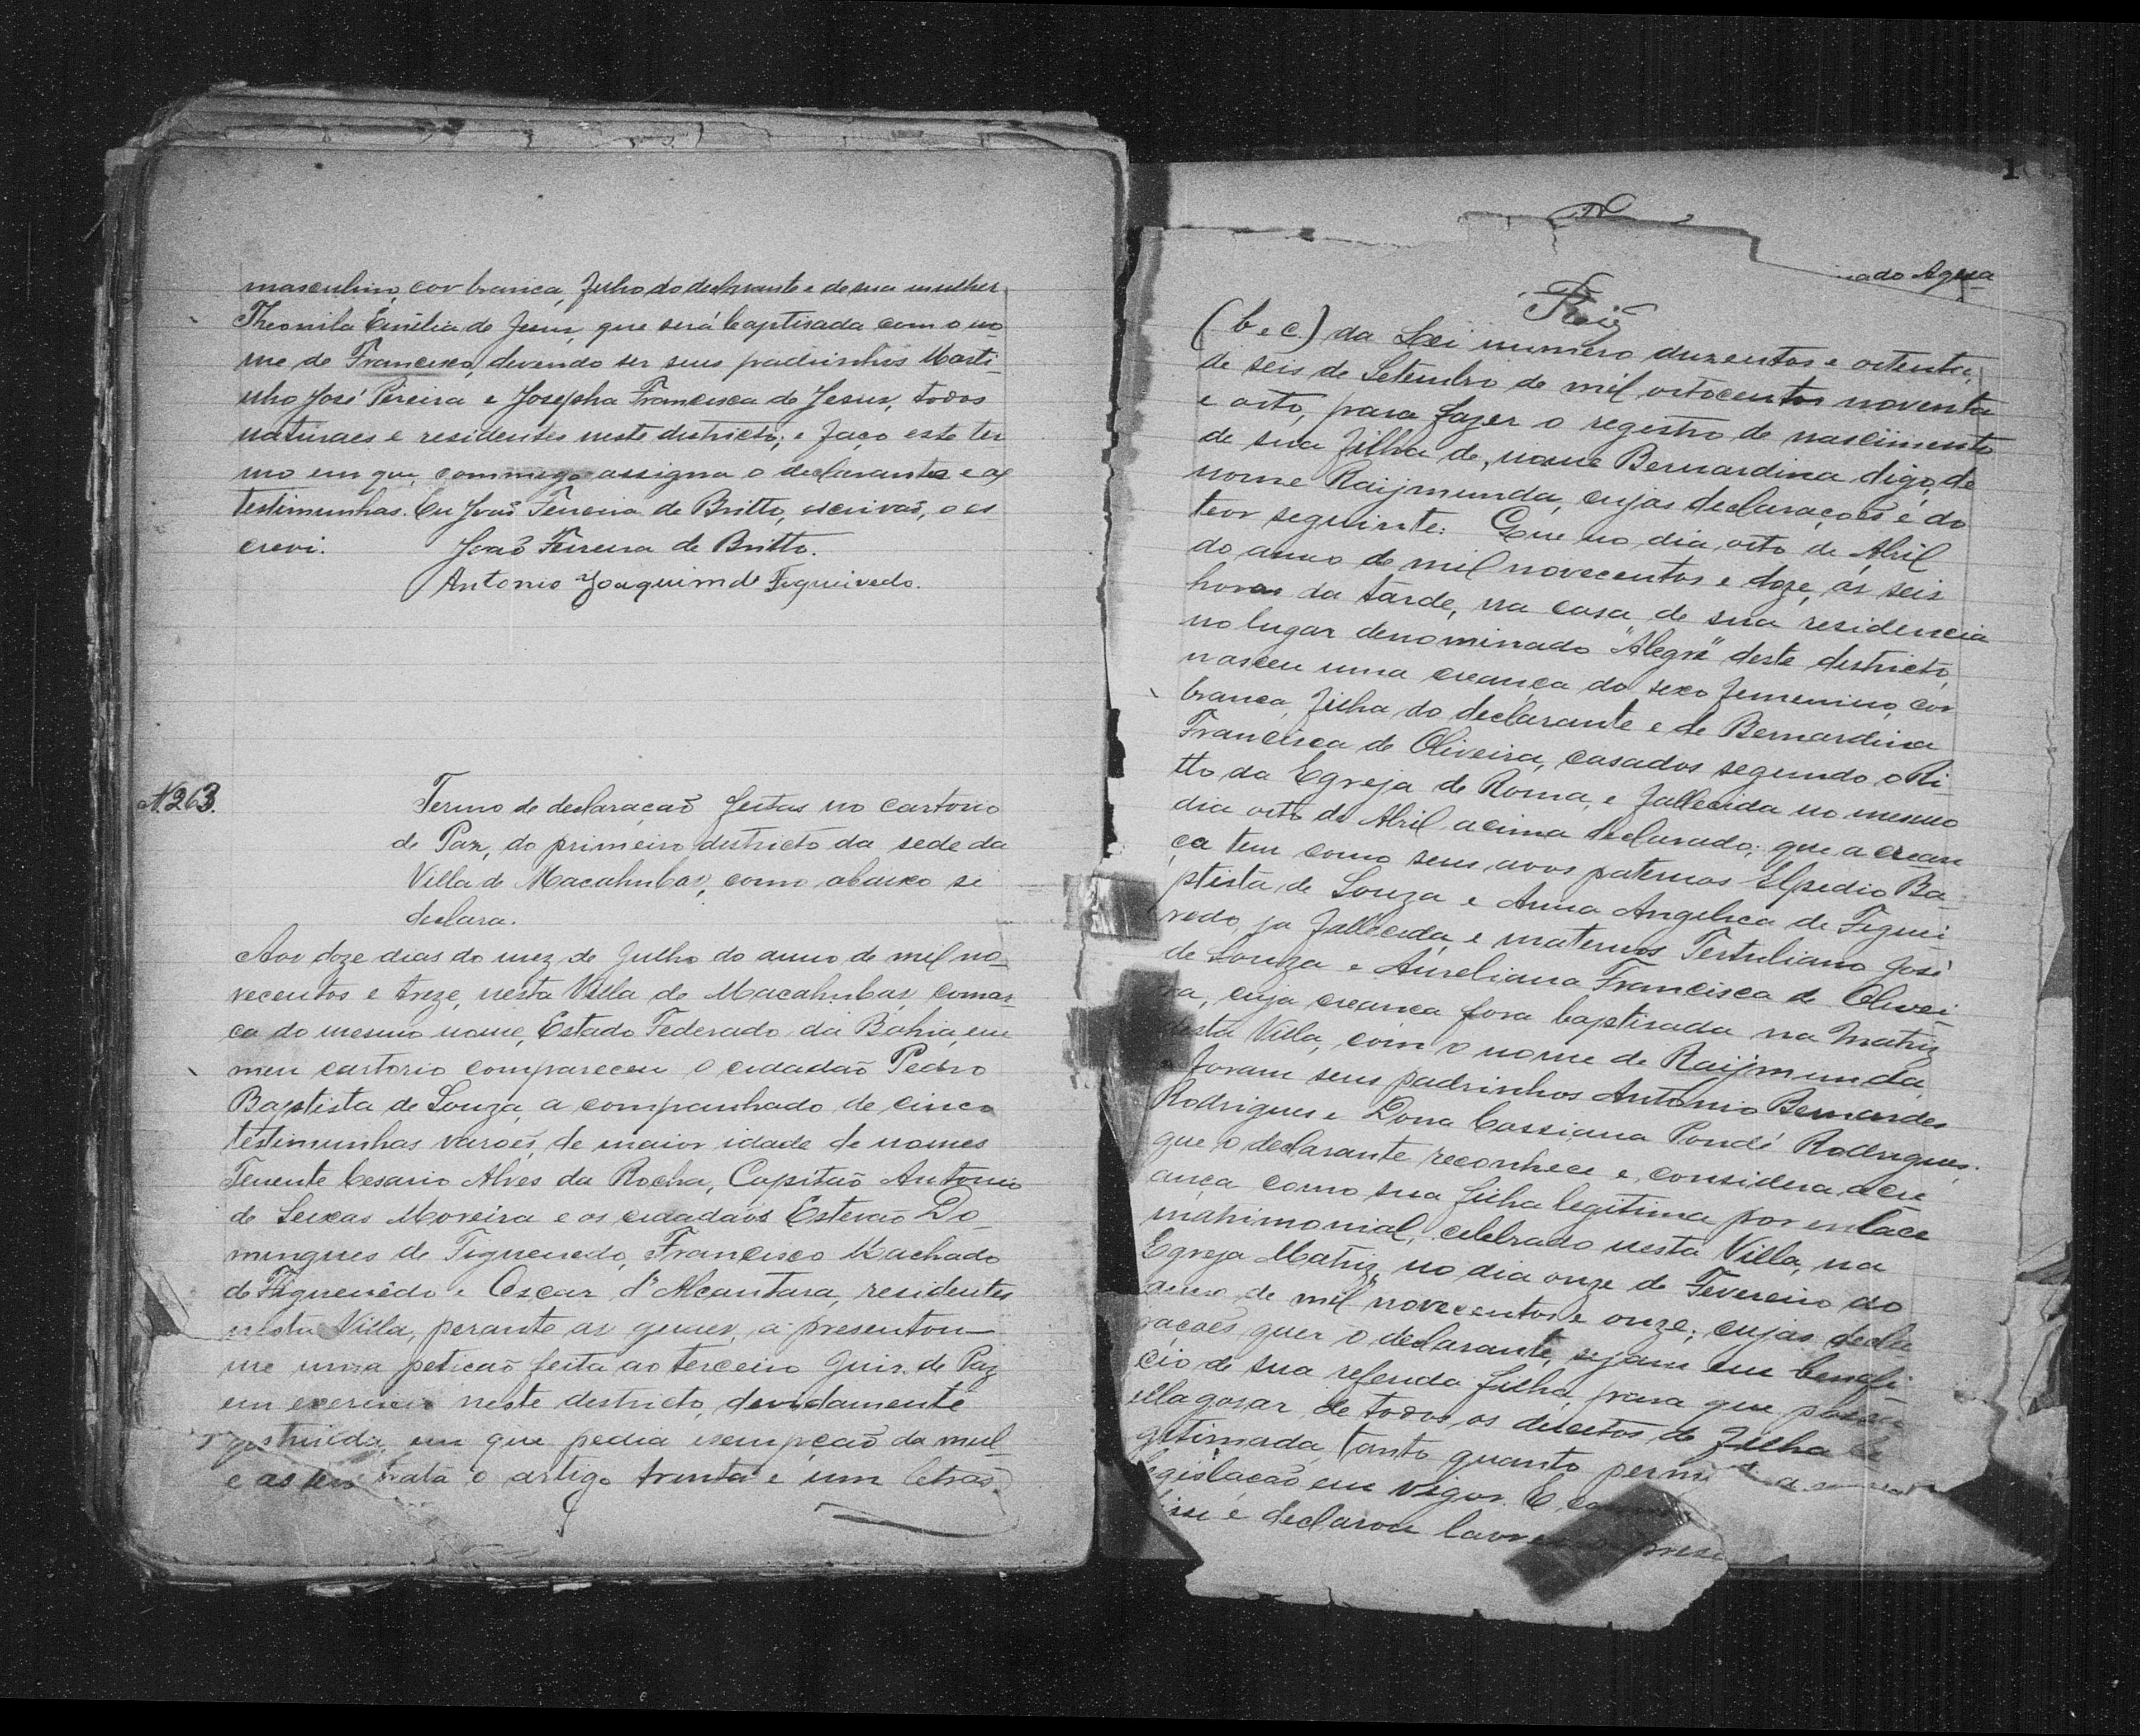 masculino, cor branca, filho do declarante e de sua mulher
Theonila Emilia de Jesus, que será baptisada com o no
me de Francisco, devendo ser seus padrinhos Marti-
nho José Pereira e Josepha Francisca de Jesus, todos
naturaes e residentes neste districto; e faço este ter
mo em que, commigo assigna o declarante e as
testimunhas. Eu João Ferreira de Britto, escrivaõ, o es
crevi. João Ferreira de Britto.
Antonio Joaquim de Figueiredo.
N. 263.
Termo de declaraçaõ feitas no cartorio
de Paz, do primeiro districto da sede da
Villa de Macahubas, como abaixo se
declara.
Aos doze dias do mez de Julho do anno de mil no-
vecentos e treze, nesta Villa de Macahubas, comar
ca do mesmo nome, Estado Federado da Bahia, em
meu cartorio compareceu o cidadaõ Pedro
Baptista de Souza, a companhado de cinco
testimunhas varões, de maior idade de nomes
Tenente Cesario Alves da Rocha, Capitaõ Antonio
de Seixas Moreira e os cidadaõs Estevaõ Do-
mingues de Figueiredo, Francisco Machado
de Figueirêdo e Oscar d'Alcantara, residentes
nesta Villa, perante as quaes, a presentou-
me uma petiçaõ feita ao terceiro Juiz de Paz
em exercicio neste districto, devidamente
em que pedia isempçaõ da mul
trata o artigo trinta e um letras
1
nado Agua
(b e c.) da Lei numero duzentos e oitenta,
de seis de Setembro de mil oitocentos noventa
e oito, para fazer o registro de nascimento
de sua filha de, nome Bernardina digo, de
nome Raijmunda, cujas declarações é do
teor seguinte: Que no dia oito de Abril
do anno de mil novecentos e doze, as seis
horas da tarde, na casa de sua residencia
no lugar denominado "Alegre" deste districto,
nasceu uma creança do sexo femenino, cor
branca, filha do declarante e de Bernardina
Francisca de Oliveira, casados segundo o Ri-
tto da Egreja de Roma, e fallecida no mesmo
dia oito de Abril acima declarado; que a crean
ça tem como seus avos paternos Elpedio Ba-
ptista de Souza e Anna Angelica de Figuei-
redo, ja fallecida, e maternos Tertuliano José
de Souza e Aureliana Francisca de Olivei
ra, cuja creança fora baptisada na Matriz
desta Villa, com o nome de Raijmunda,
e foram seus padrinhos Antonio Bernardes
Rodrigues e Dona Cassiana Pondé Rodrigues;
que o declarante reconhece e considera a cre
ança como sua filha legitima por enlace
matrimonial, celebrado nesta Villa, na
Egreja Matriz, no dia onze de Fevereiro do
anno de mil novecentos e onze; cujas decla
rações quer o declarante, sejam em benefi
cio de sua referida filha, para que possa
ella gosar de todos os direitos de filha le
gitimada, tanto quanto permi a
legislaçaõ em vigor. E
disse e declarou